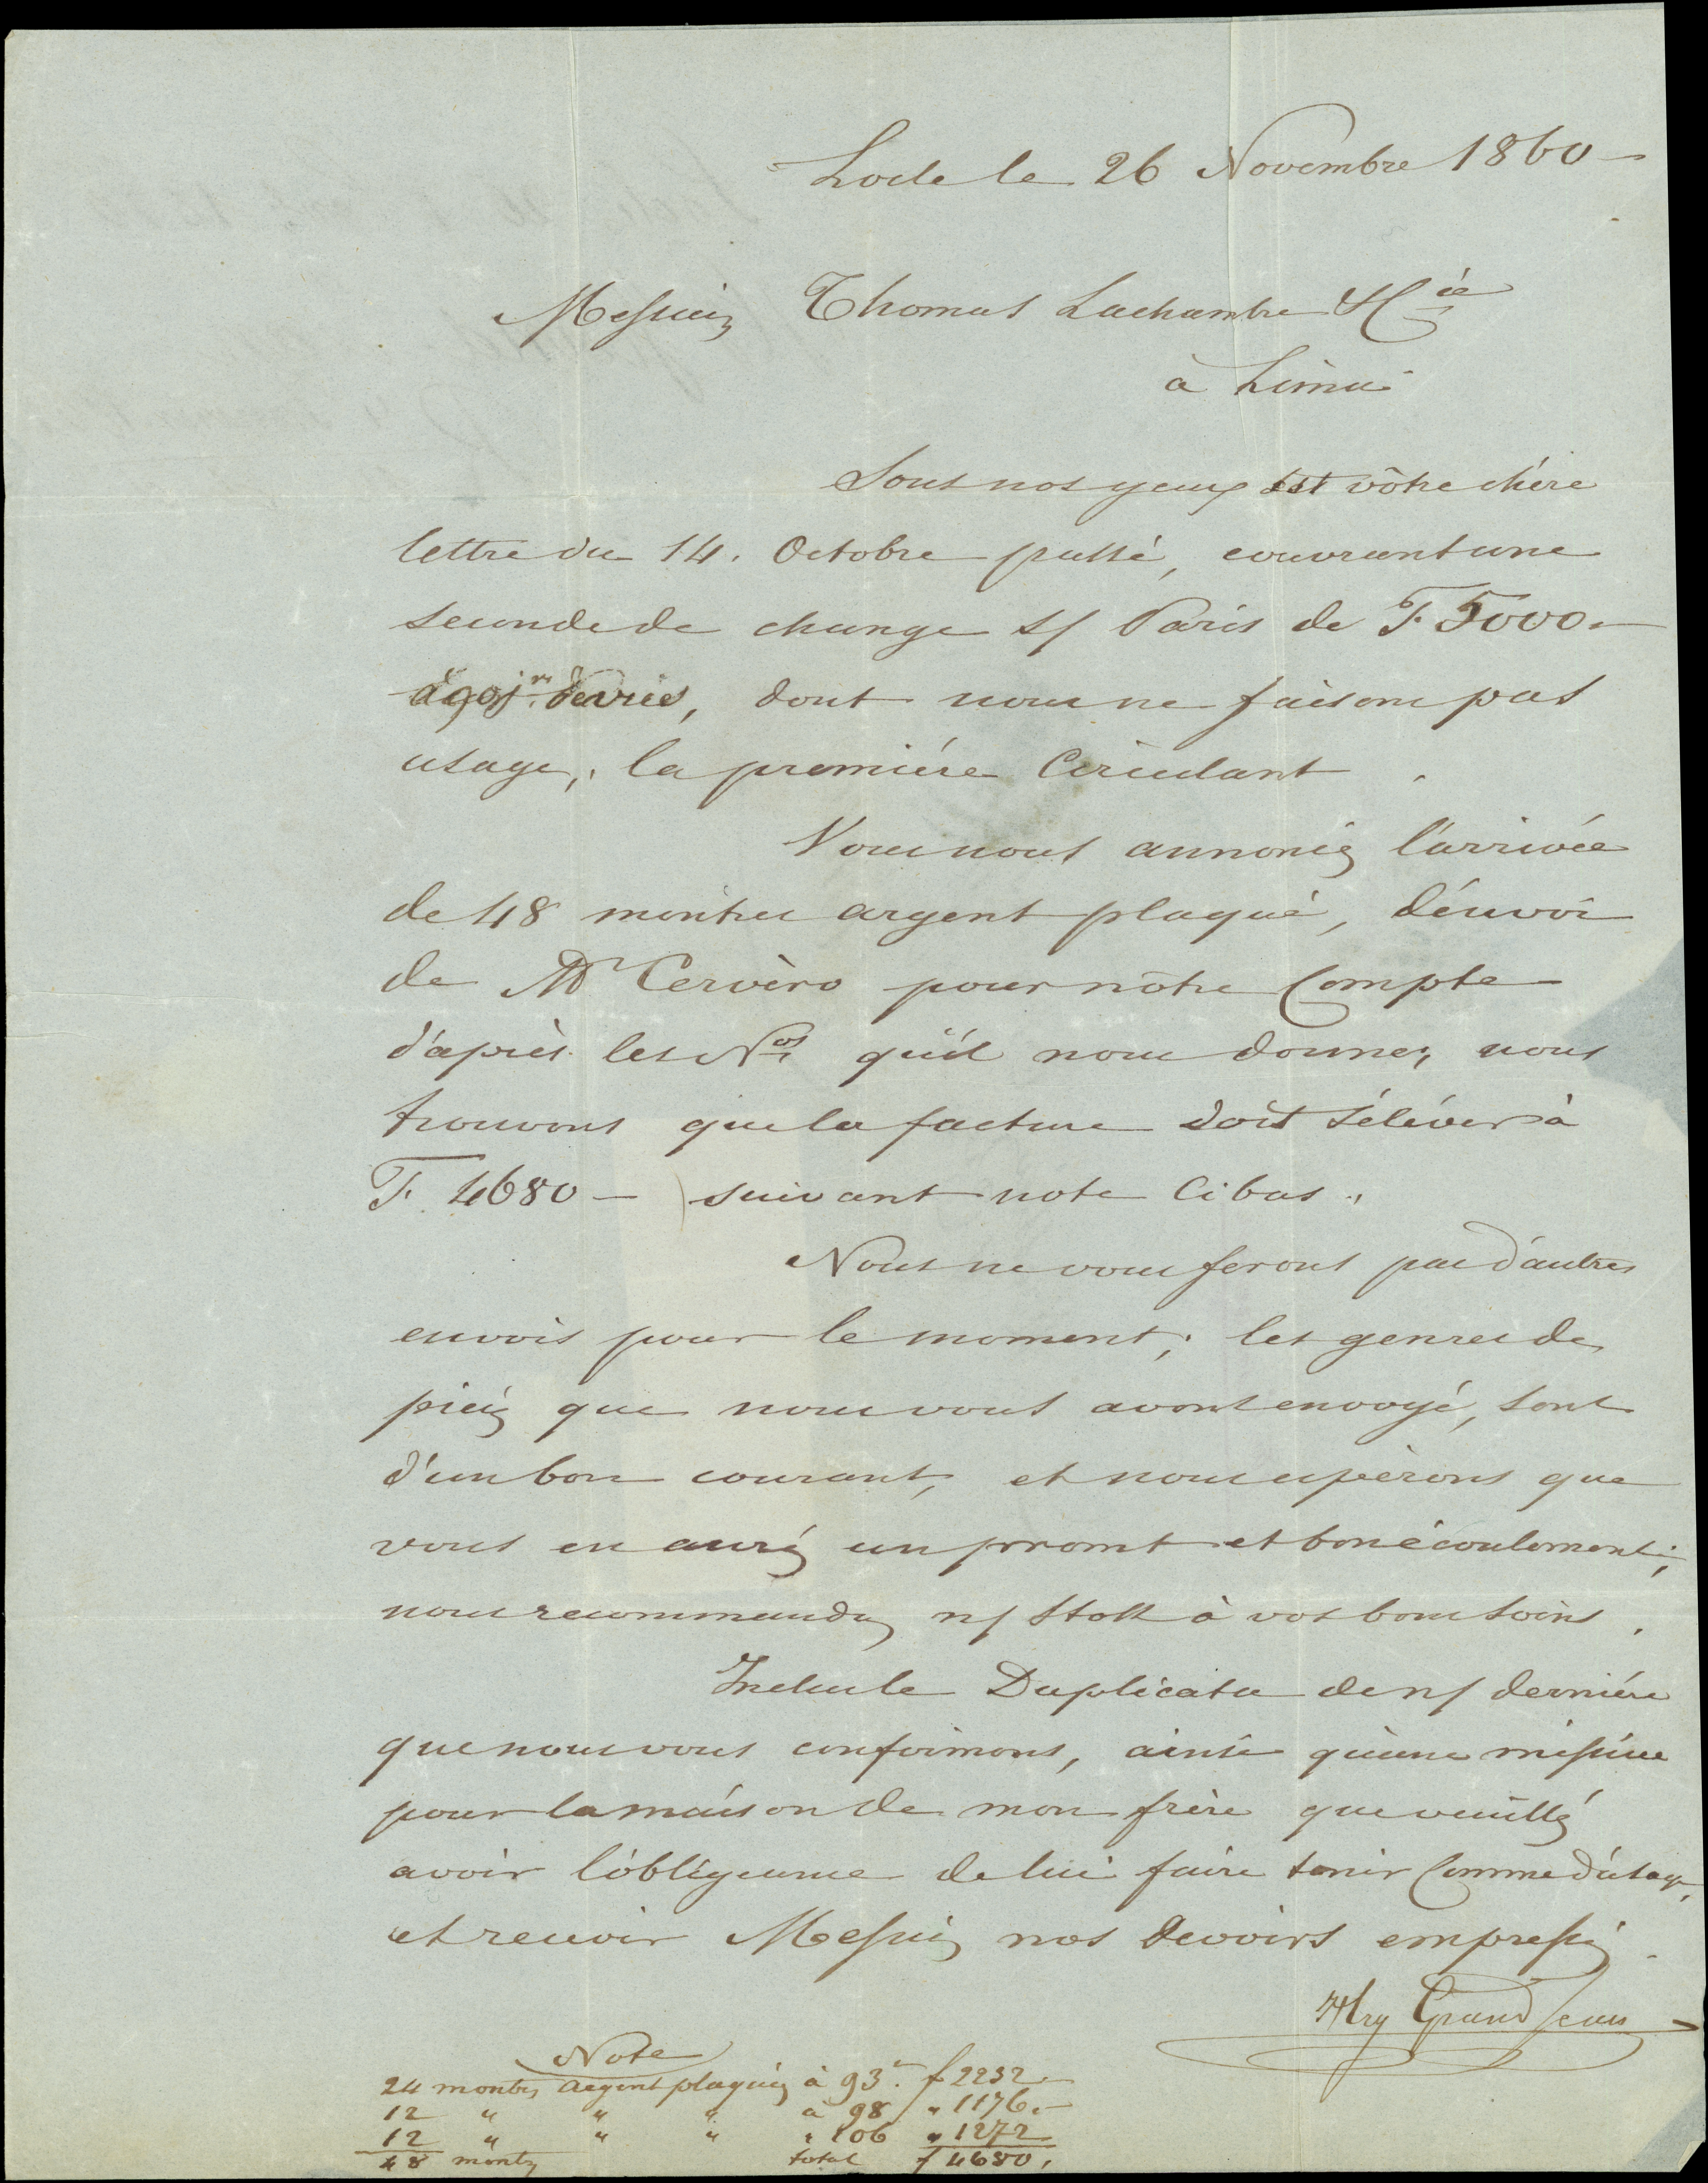 Locle le 26 Novembre 1860 –
Messieurs Thomas Lachambre & Cie
à Lima
Sous nos yeux est vôtre chére
lettre du 14. Octobre passé, couvrant une
seconde de change s/ Paris de F. 5000. –
à 90 jrs de vue, dont nous ne faisons pas
usage, la premiére circulant.
Vous nous annoncéz l'arrivée
de 48 montres argent plaqué, d'énvoi
de Mr Cervèro pour nôtre Compte
d'aprèt les Nos qu'il nous donne, nous
trouvons que la facture doit s'éléver à
F. 4680 – suivant note ci bas.
Nous ne vous ferons pas d'autres
envois pour le moment; les genres de
piéçes que nous vous avons envoyé, sont
d'un bon courant, et nous espèrons que
vous en auréz un promt et bon écoulement;
nous recommandons n/ Stock à vos bons soins.
Incluse Duplicata de n/ derniére
que nous vous confirmons, ainsi qu'une missive
pour la maison de mon frère que veuilléz
avoir l'obligeance de lui faire tenir Comme d'usage,
et recevoir Messieurs nos devoirs empressés.
Hry Grand Jean
Note
24 montres argent plaquéz à 93. f 2232 –
12 " " " à 98 " 1176. –
12 " " " " 106 " 1272
48 montres total f 4680.